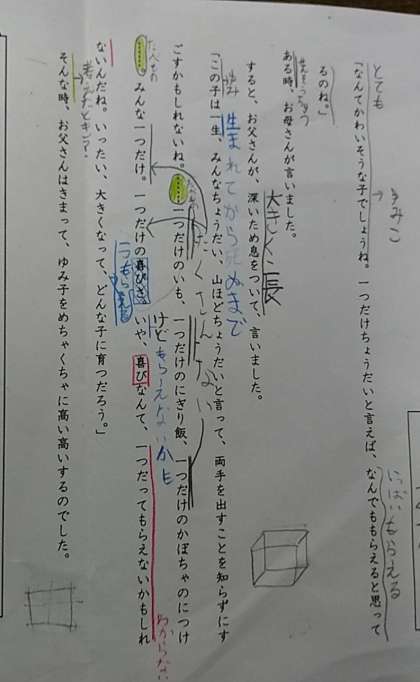 とても
「なんてかわいそうな子でしょうね。一つだけちょうだいと言えば、なんでももらえると思って
ゆみこ
いっぱいもらえる
るのね。」
ある時、お母さんが言いました。
すると、お父さんが、深いため息をついて、言いました。
大きくに長
ゆみ
生まれてから死ぬまで
「この子は一生、みんなちょうだい、山ほどちょうだいと言って、両手を出すことを知らずにす
ごすかもしれないね。……一つだけのいも、一つだけのにぎり飯、一つだけのかぼちゃのにつけ
たくさんない
……。みんな一つだけ。一つだけの喜びさ。いや、喜びなんて、一つだってもらえないかもしれ
一つもらえる
けどもらえないかも
わからない
ないんだね。いったい、大きくなって、どんな子に育つだろう。」
考えたとき?
そんな時、お父さんはきまって、ゆみ子をめちゃくちゃに高い高いするのでした。